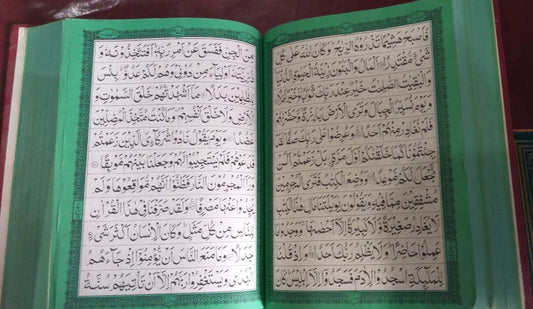 فَاَصْبَحَ هَشِيْمًا تَذْرُوْهُ الرِّيٰحُ ؕ وَكَانَ اللّٰهُ عَلٰى كُلِّ
شَىْءٍ مُّقْتَدِرًا اَلْمَالُ وَالْبَنُوْنَ زِيْنَةُ الْحَيٰوةِ الدُّنْيَا
وَالْبٰقِيٰتُ الصّٰلِحٰتُ خَيْرٌ عِنْدَ رَبِّكَ ثَوَابًا وَّخَيْرٌ اَمَلًا
وَيَوْمَ نُسَيِّرُ الْجِبَالَ وَتَرَى الْاَرْضَ بَارِزَةً وَّحَشَرْنٰهُمْ
فَلَمْ نُغَادِرْ مِنْهُمْ اَحَدًا وَعُرِضُوْا عَلٰى رَبِّكَ صَفًّا لَقَدْ
جِئْتُمُوْنَا كَمَا خَلَقْنٰكُمْ اَوَّلَ مَرَّةٍ بَلْ زَعَمْتُمْ اَلَّنْ
نَّجْعَلَ لَكُمْ مَّوْعِدًا وَوُضِعَ الْكِتٰبُ فَتَرَى الْمُجْرِمِيْنَ
مُشْفِقِيْنَ مِمَّا فِيْهِ وَيَقُوْلُوْنَ يٰوَيْلَتَنَا مَالِ هٰذَا الْكِتٰبِ
لَا يُغَادِرُ صَغِيْرَةً وَّلَا كَبِيْرَةً اِلَّاۤ اَحْصٰىهَا وَوَجَدُوْا مَا
عَمِلُوْا حَاضِرًا وَلَا يَظْلِمُ رَبُّكَ اَحَدًا وَاِذْ قُلْنَا
لِلْمَلٰٓئِكَةِ اسْجُدُوْا لِاٰدَمَ فَسَجَدُوْۤا اِلَّاۤ اِبْلِيْسَ كَانَ
مِنَ الْجِنِّ فَفَسَقَ عَنْ اَمْرِ رَبِّهٖ اَفَتَتَّخِذُوْنَهٗ وَ
ذُرِّيَّتَهٗۤ اَوْلِيَآءَ مِنْ دُوْنِيْ وَهُمْ لَكُمْ عَدُوٌّ بِئْسَ
لِلظّٰلِمِيْنَ بَدَلًا مَاۤ اَشْهَدْتُّهُمْ خَلْقَ السَّمٰوٰتِ وَ
الْاَرْضِ وَلَا خَلْقَ اَنْفُسِهِمْ وَمَا كُنْتُ مُتَّخِذَ الْمُضِلِّيْنَ
عَضُدًا وَيَوْمَ يَقُوْلُ نَادُوْا شُرَكَآءِيَ الَّذِيْنَ زَعَمْتُمْ
فَدَعَوْهُمْ فَلَمْ يَسْتَجِيْبُوْا لَهُمْ وَجَعَلْنَا بَيْنَهُمْ مَّوْبِقًا
وَرَاَ الْمُجْرِمُوْنَ النَّارَ فَظَنُّوْۤا اَنَّهُمْ مُّوَاقِعُوْهَا وَلَمْ
يَجِدُوْا عَنْهَا مَصْرِفًا وَلَقَدْ صَرَّفْنَا فِيْ هٰذَا الْقُرْاٰنِ
لِلنَّاسِ مِنْ كُلِّ مَثَلٍ وَكَانَ الْاِنْسَانُ اَكْثَرَ شَيْءٍ
جَدَلًا وَمَا مَنَعَ النَّاسَ اَنْ يُّؤْمِنُوْۤا اِذْ جَآءَهُمُ
الْهُدٰى وَيَسْتَغْفِرُوْا رَبَّهُمْ اِلَّاۤ اَنْ تَاْتِيَهُمْ سُنَّةُ